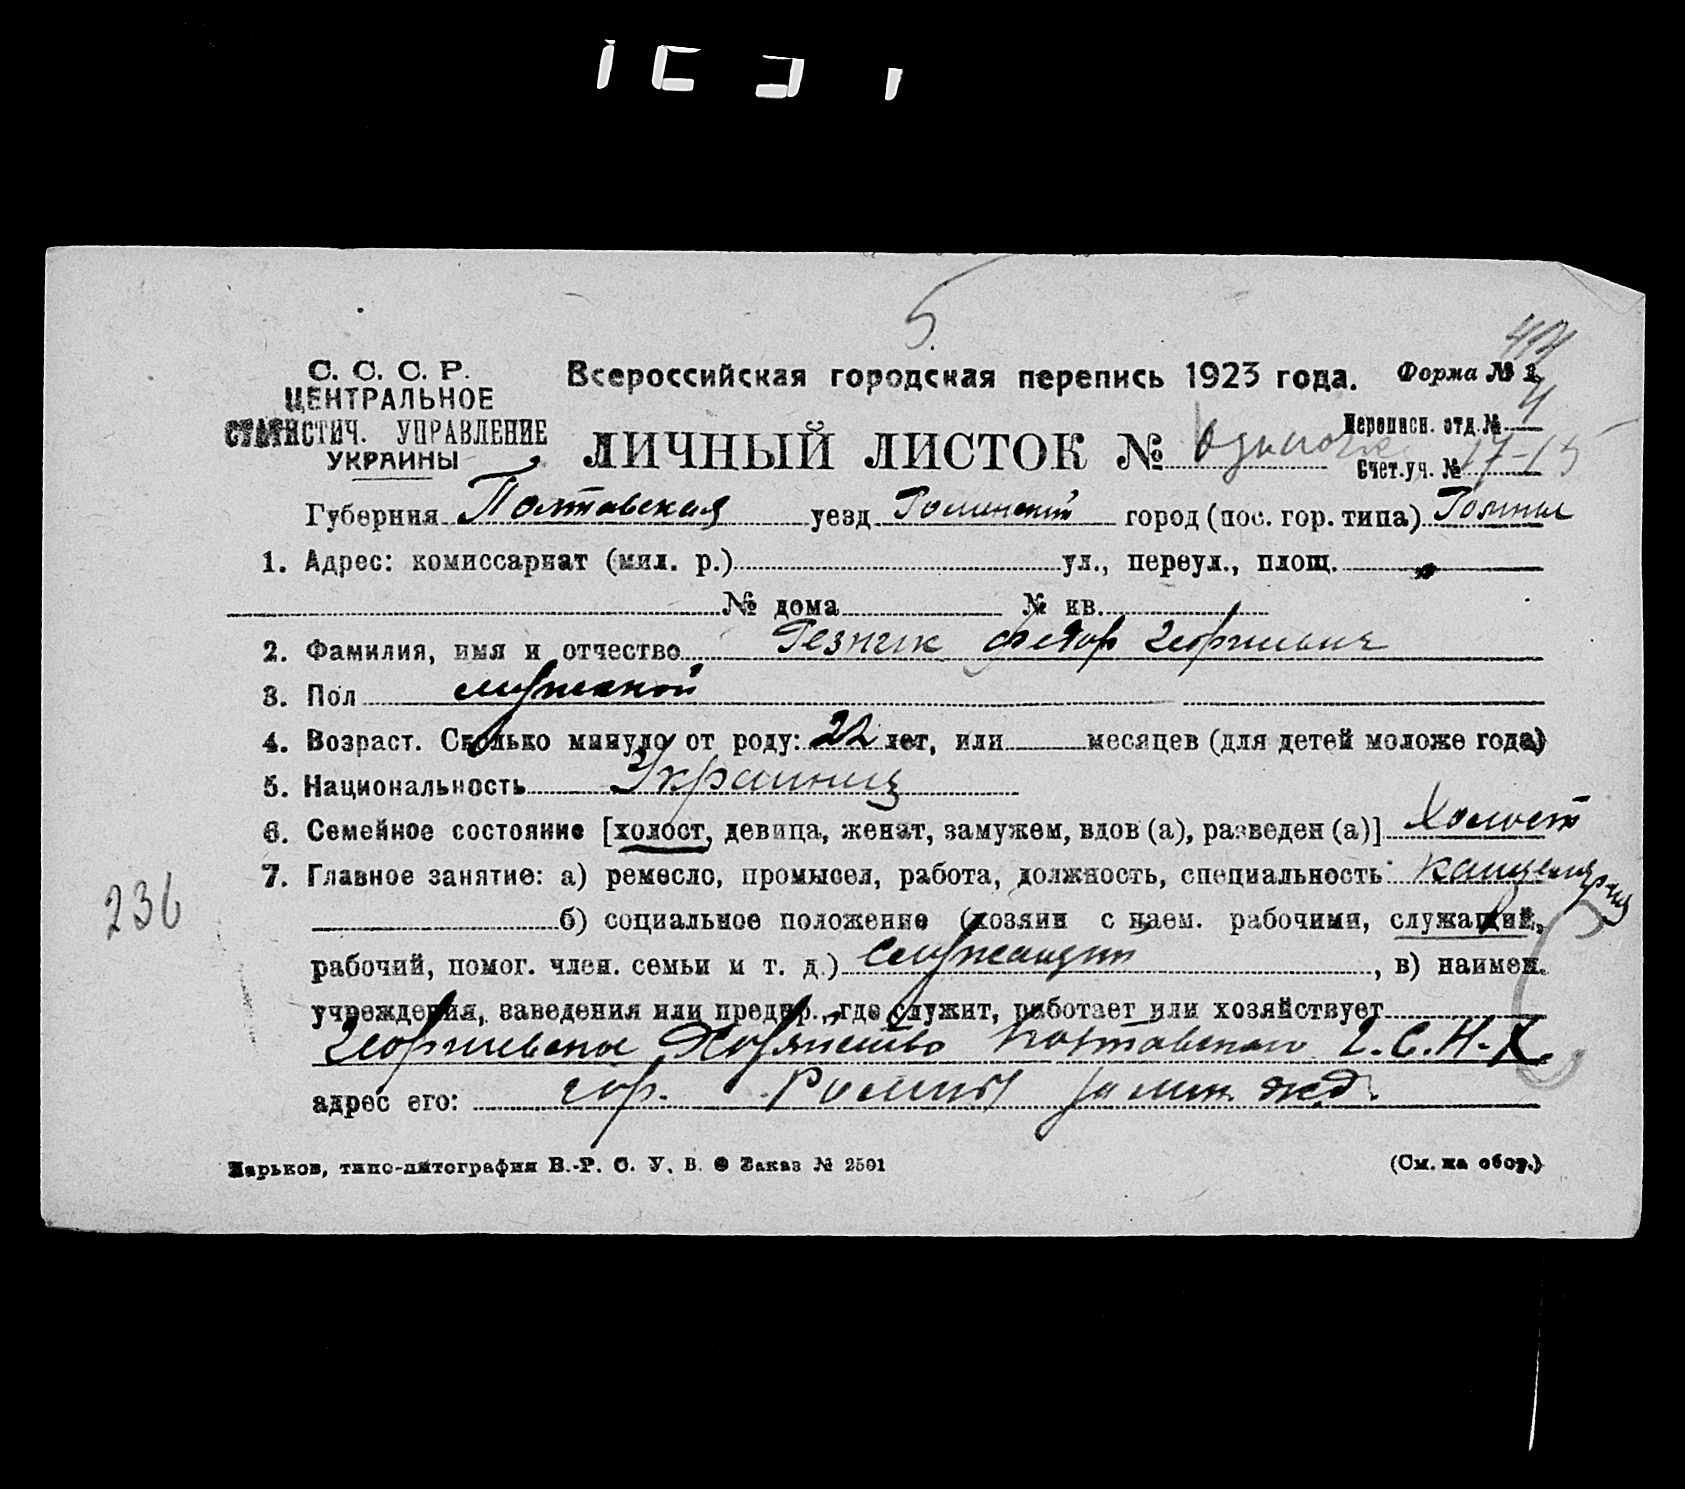 5.
С. С. С. Р.
ЦЕНТРАЛЬНОЕ
СТАТИСТИЧ. УПРАВЛЕНИЕ
УКРАИНЫ
Всероссийская городская перепись 1923 года.
Форма № 1
ЛИЧНЫЙ ЛИСТОК №
Переписн. отд. № 4
Счет. уч. № 17-15
Губерния Полтавская уезд Роменский город (пос. гор. типа) Ромны
1. Адрес: комиссариат (мил. р.) ул., переул., площ.
№ дома № кв.
2. Фамилия, имя и отчество Резник Федор Георгиевич
3. Пол мужской
4. Возраст. Сколько минуло от роду: 22 лет, или месяцев (для детей моложе года)
5. Национальность Украинец
6. Семейное состояние [холост, девица, женат, замужем, вдов (а), разведен (а)] Холост
7. Главное занятие: а) ремесло, промысел, работа, должность, специальность: канцелярия
236
б) социальное положение (хозяин с наем. рабочими, служащий,
рабочий, помог. член. семьи и т. д.) служащий, в) наимен.
учреждения, заведения или предпр., где служит, работает или хозяйствует
Хозяйство Полтавского Г.С.Н.Х.
адрес его: гор. Ромны
Харьков, типо-литография В.-Р. С. У. В. Заказ № 2501
(См. на обор.)